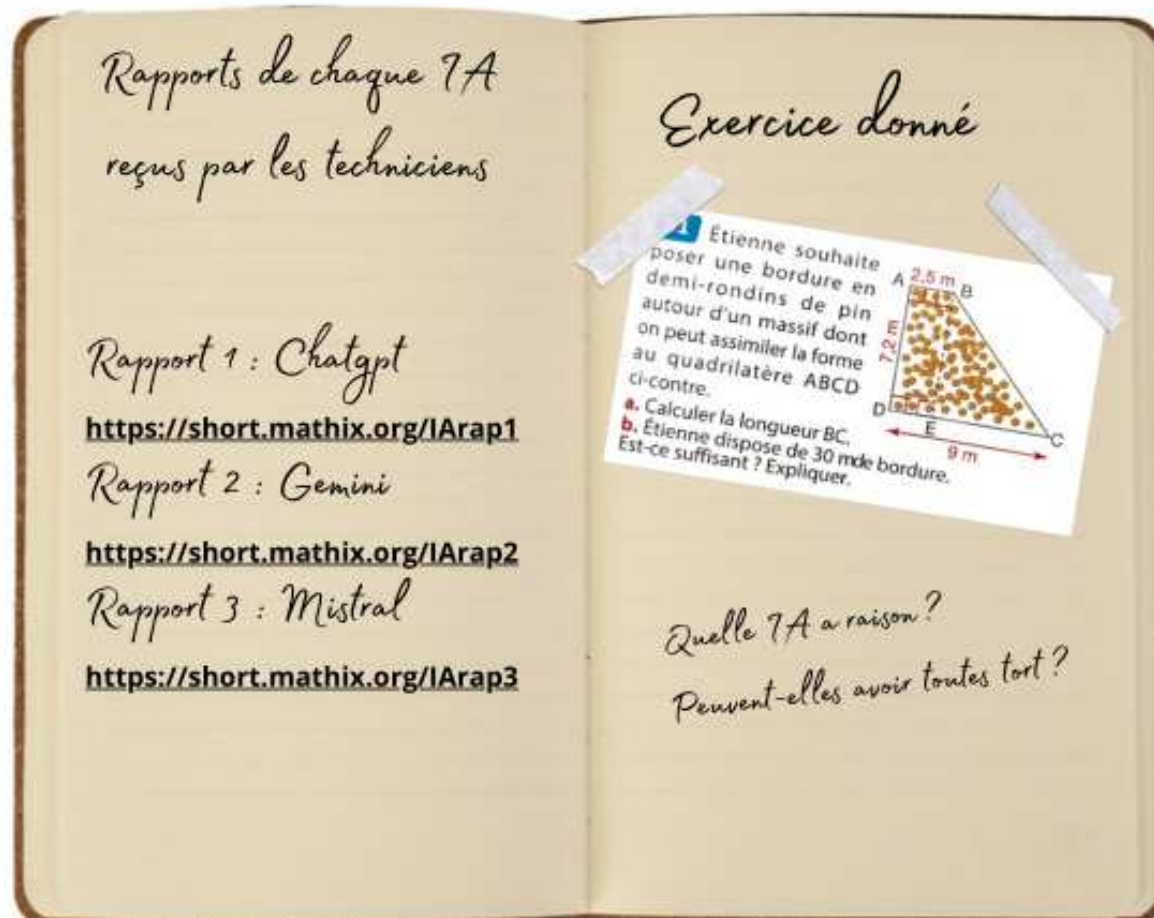 Rapports de chaque IA
reçus par les techniciens
Rapport 1 : Chatgpt
https://short.mathix.org/IArap1
Rapport 2 : Gemini
https://short.mathix.org/IArap2
Rapport 3 : Mistral
https://short.mathix.org/IArap3
Exercice donné
Étienne souhaite
poser une bordure en
demi-rondins de pin
autour d'un massif dont
on peut assimiler la forme
au quadrilatère ABCD
ci-contre.
a. Calculer la longueur BC.
b. Étienne dispose de 30 mde bordure.
Est-ce suffisant ? Expliquer.
A 2,5 m B
7,2 m
D E C
9 m
Quelle IA a raison ?
Peuvent-elles avoir toutes tort ?